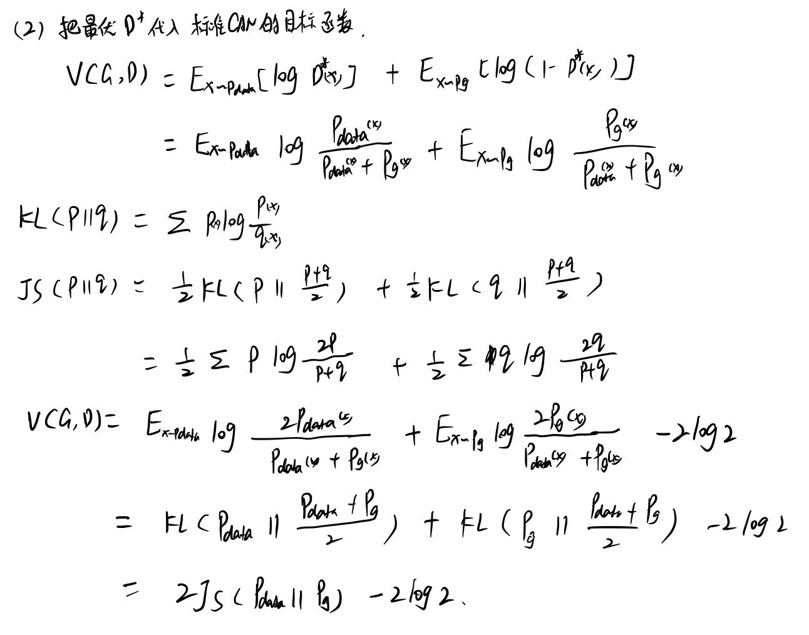 (2) 把最优 D* 代入 标准GAN的目标函数.
V(G,D) = E_{x~Pdata}[log D*(x)] + E_{x~Pg}[log(1-D*(x))]
= E_{x~Pdata} log \frac{Pdata(x)}{Pdata(x) + Pg(x)} + E_{x~Pg} log \frac{Pg(x)}{Pdata(x) + Pg(x)}
KL(P||q) = Σ P(x) log \frac{P(x)}{q(x)}
JS(P||q) = \frac{1}{2} KL(P || \frac{P+q}{2}) + \frac{1}{2} KL(q || \frac{P+q}{2})
= \frac{1}{2} Σ P log \frac{2P}{P+q} + \frac{1}{2} Σ q log \frac{2q}{P+q}
V(G,D) = E_{x~Pdata} log \frac{2Pdata(x)}{Pdata(x) + Pg(x)} + E_{x~Pg} log \frac{2Pg(x)}{Pdata(x) + Pg(x)} - 2log2
= KL(Pdata || \frac{Pdata + Pg}{2}) + KL(Pg || \frac{Pdata + Pg}{2}) - 2log2
= 2JS(Pdata || Pg) - 2log2.